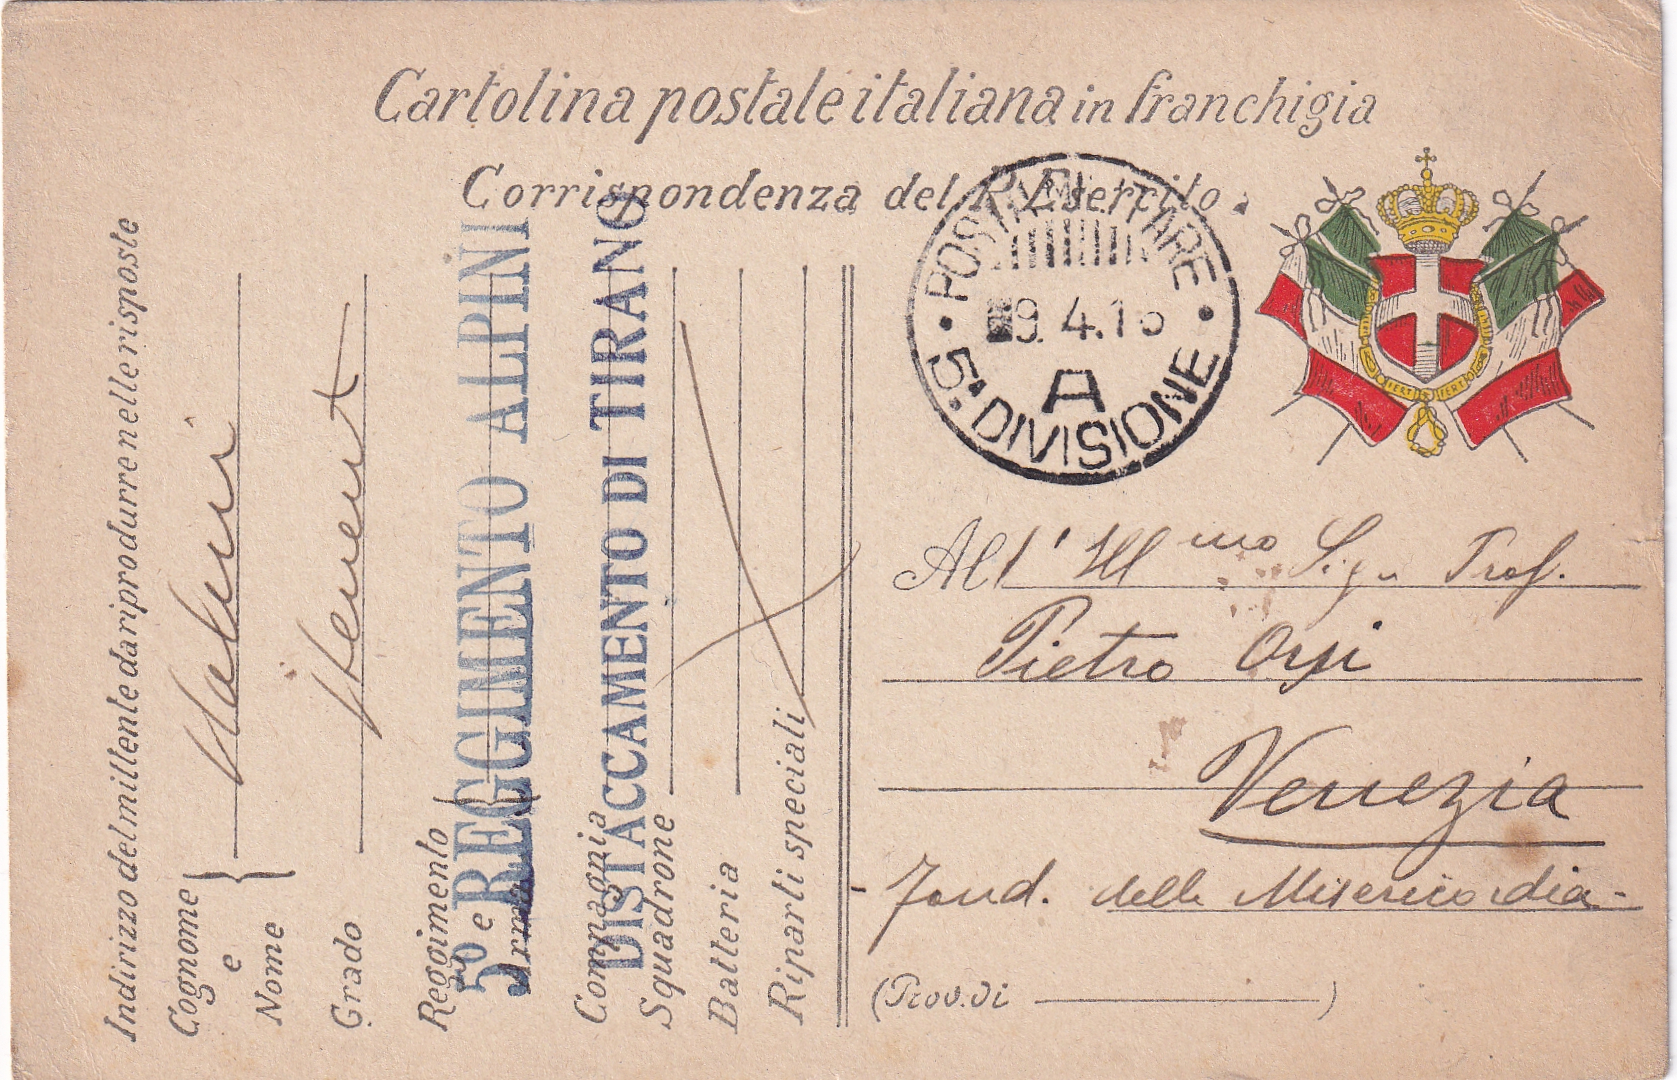 Cartolina postale italiana in franchigia
Corrispondenza del R. Esercito.
POSTA MILITARE
9.4.16
A
5ª DIVISIONE
FERT FERT
Indirizzo del mittente da riprodurre nelle risposte
Cognome
e
Nome
Grado
Reggimento
e
Arma
5º REGGIMENTO ALPINI
DISTACCAMENTO DI TIRANO
Compagnia
Squadrone
Batteria
Riparti speciali
All' Ill mo Sign Prof.
Pietro Orsi
Venezia
Fond. delle Misericordia -
(Prov. di )